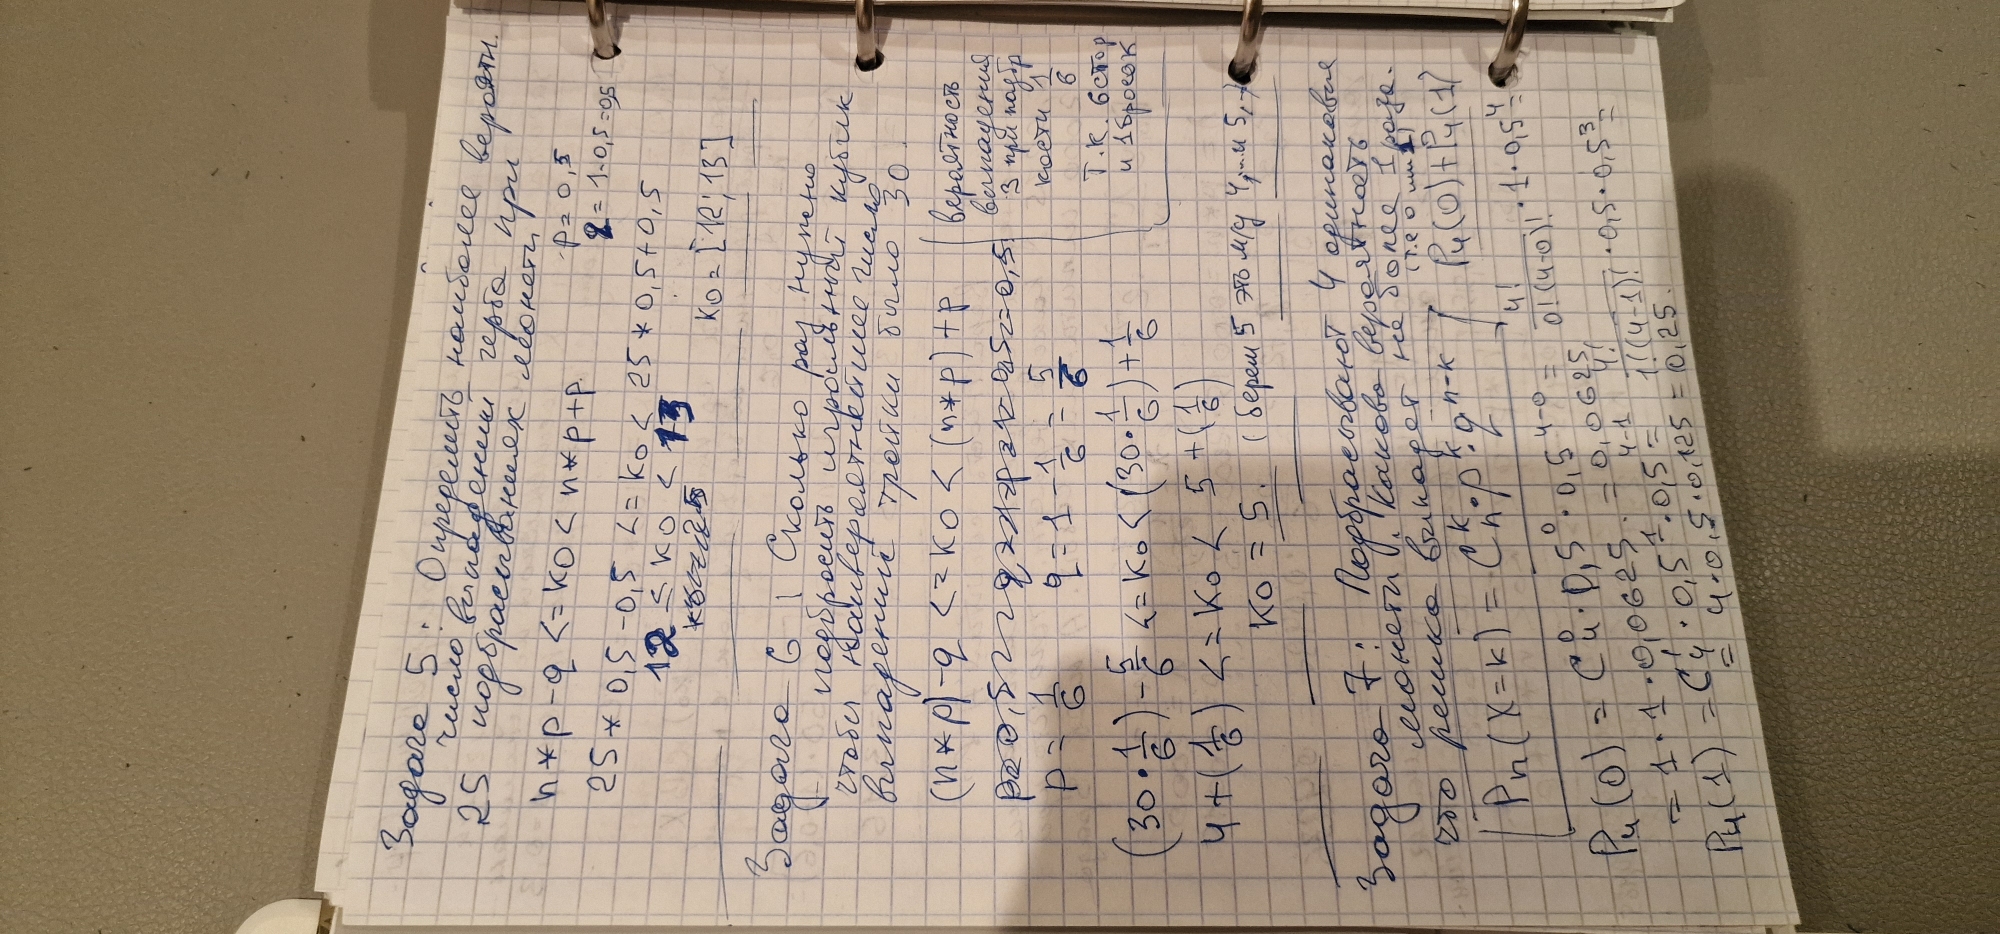 Задача 5: Определить наиболее вероятн.
число выпадений герба при
25 подбрасываниях монеты
n*p-q <= k0 < n*p+p.
p = 0,5
25*0,5-0,5 <= k0 < 25*0,5+0,5
q = 1-0,5=0,5
12 ≤ k0 < 13
k0 = [12; 13]
Задача 6: Сколько раз нужно
подбросить игральный кубик
чтобы наивероятнейшее число
выпадений тройки было 30.
(n*p)-q <= k0 < (n*p)+p
p = 1/6 q = 1 - 1/6 = 5/6
вероятность
выпадения
3 при подбр
кости 1/6
т.к. 6 стор
и 1 бросок
(30·1/6) - 5/6 <= k0 < (30·1/6) + 1/6
4+(1/6) <= k0 < 5+(1/6)
k0 = 5. (берем 5 это м/д 4,... и 5,...)
Задача 7: Подбрасывают 4 одинаковые
монеты. Какова вероятность
что решка выпадет не более 1 раза.
(т.е 0 или 1)
Pn(X=k) = C_n^k · p^k · q^(n-k)
P4(0)+P4(1)
P4(0) = C_4^0 · 0,5^0 · 0,5^(4-0) = 4!/(0!(4-0)!) · 1 · 0,5^4 =
= 1·1·0,0625 = 0,0625
P4(1) = C_4^1 · 0,5^1 · 0,5^(4-1) = 4!/(1!(4-1)!) · 0,5 · 0,5^3 =
= 4·0,5·0,125 = 0,25.